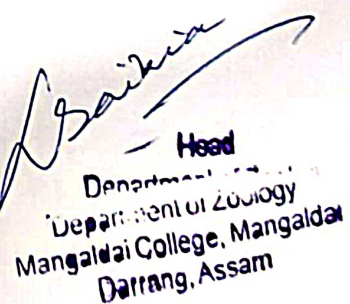 Saikia
Head
Department of
Department of Zoology
Mangaldai College, Mangaldai
Darrang, Assam